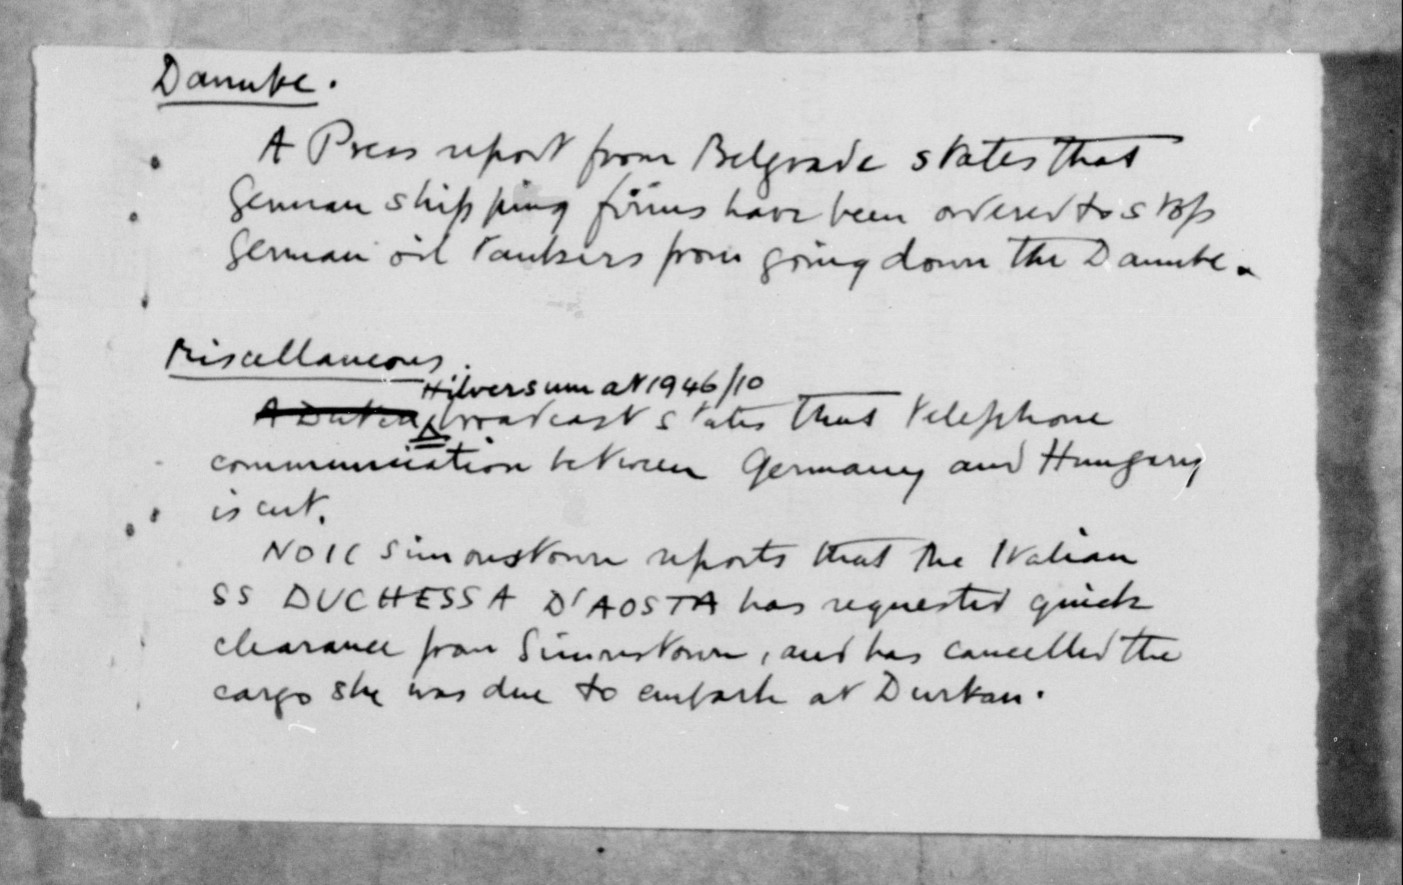 Danube.
A Press report from Belgrade states that
German shipping firms have been ordered to stop
German oil tankers from going down the Danube.
Miscellaneous.
Hilversum at 1946/10
A Dutch broadcast states that telephone
communication between Germany and Hungary
is cut.
NOIC Simonstown reports that the Italian
SS DUCHESSA D'AOSTA has requested quick
clearance from Simonstown, and has cancelled the
cargo she was due to embark at Durban.